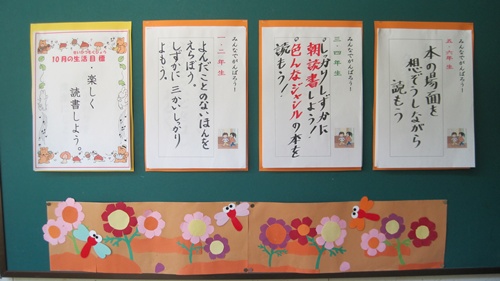 10月の生活目標
・楽しく
読書しよう。
みんなでがんばろう！
一・二年生
よんだことのないほんを
えらぼう。
しずかに 三かいしっかり
よもう。
みんなでがんばろう！
三・四年生
しっかりしずかに
朝読書しよう！
色んなジャンルの本を
読もう！
みんなでがんばろう！
五・六年生
本の場面を
想ぞうしながら
読もう